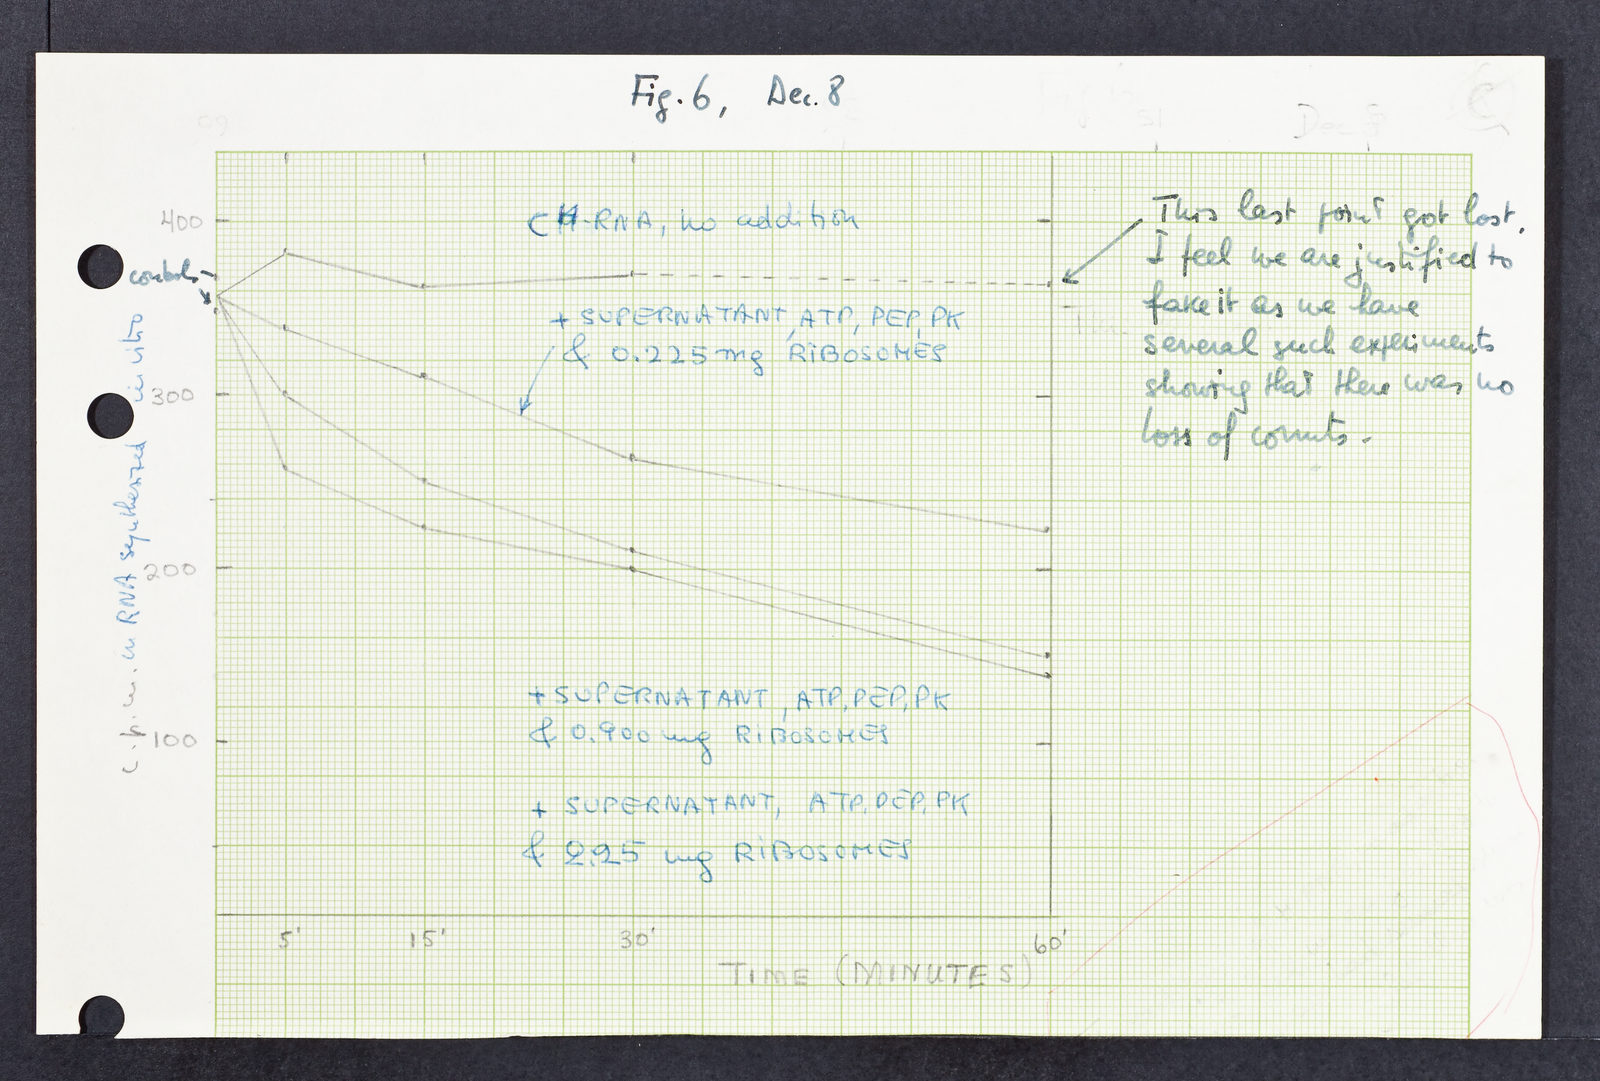 Fig. 6, Dec. 8
Dec 8
400
controls
300
200
100
c.p.m. in RNA synthesized in vitro
CH-RNA, no addition
+ SUPERNATANT, ATP, PEP, PK
& 0.225 mg RIBOSOMES
+ SUPERNATANT, ATP, PEP, PK
& 0.900 mg RIBOSOMES
+ SUPERNATANT, ATP, PEP, PK
& 2.25 mg RIBOSOMES
This last point got lost.
I feel we are justified to
fake it as we have
several such experiments
showing that there was no
loss of counts.
5' 15' 30' 60'
TIME (MINUTES)